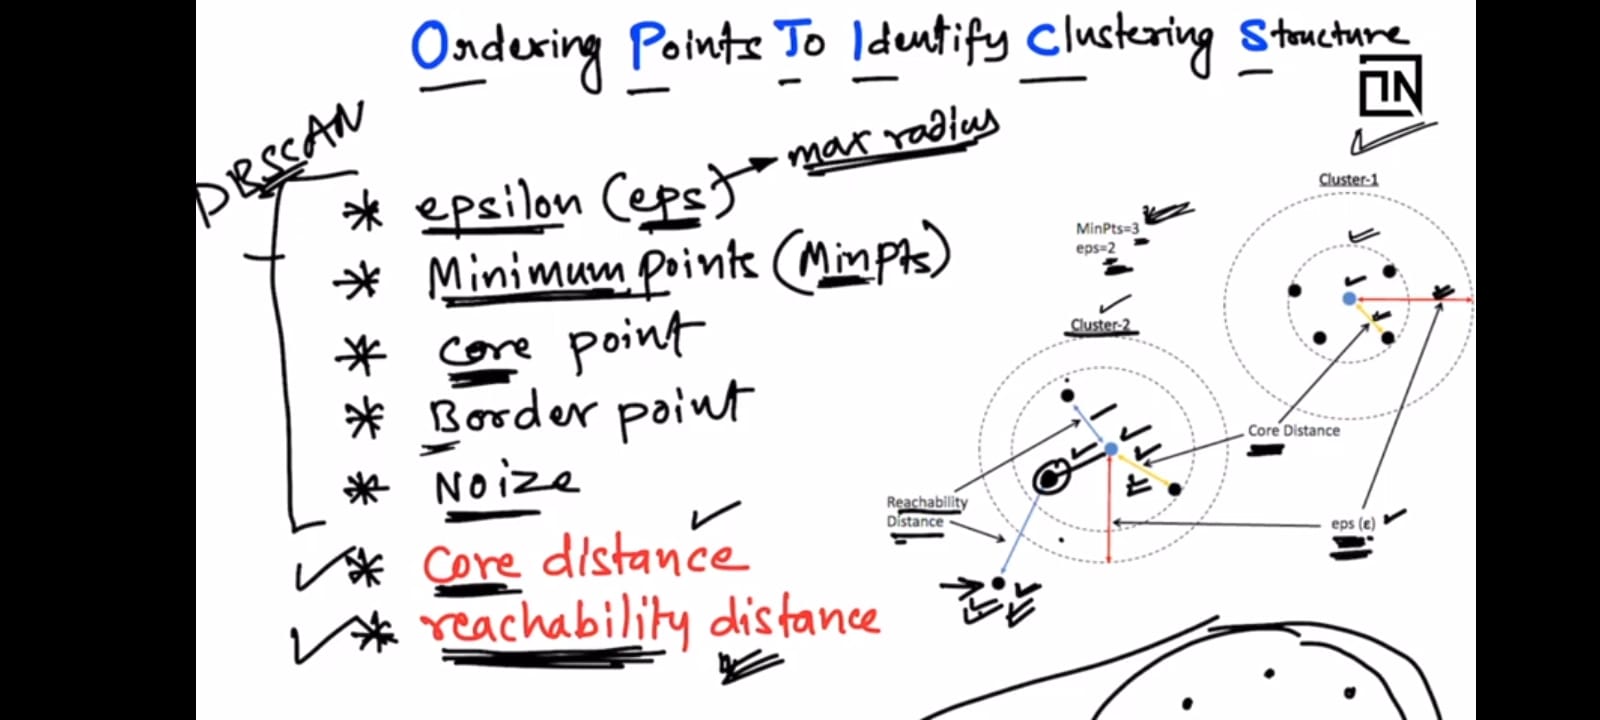 Ordering Points To Identify Clustering Structure
ΠN
DBSCAN
max radius
* epsilon (eps)
* Minimum points (MinPts)
* Core point
* Border point
* Noize
* Core distance
* reachability distance
Cluster-1
MinPts=3
eps=2
Cluster-2
Core Distance
Reachability
Distance
eps (ε)